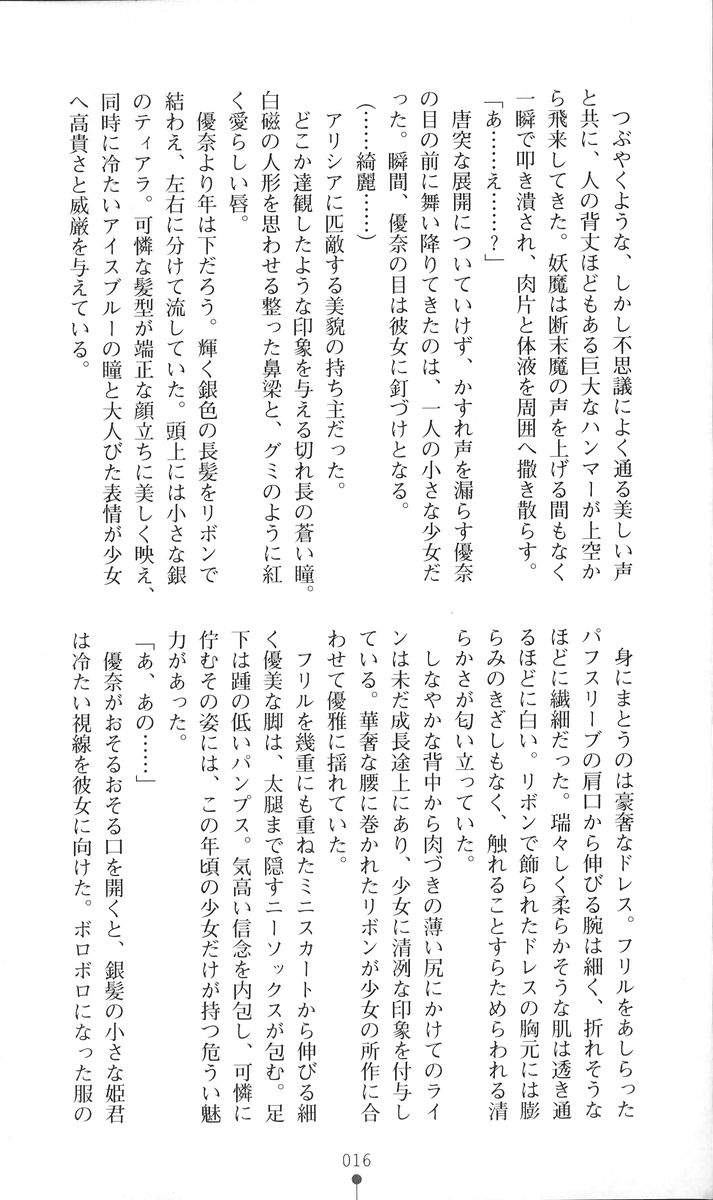 つぶやくような、しかし不思議によく通る美しい声
と共に、人の背丈ほどもある巨大なハンマーが上空か
ら飛来してきた。妖魔は断末魔の声を上げる間もなく
一瞬で叩き潰され、肉片と体液を周囲へ撒き散らす。
「あ……え……？」
唐突な展開についていけず、かすれ声を漏らす優奈
の目の前に舞い降りてきたのは、一人の小さな少女だ
った。瞬間、優奈の目は彼女に釘づけとなる。
（……綺麗……）
アリシアに匹敵する美貌の持ち主だった。
どこか達観したような印象を与える切れ長の蒼い瞳。
白磁の人形を思わせる整った鼻梁と、グミのように紅
く愛らしい唇。
優奈より年は下だろう。輝く銀色の長髪をリボンで
結わえ、左右に分けて流していた。頭上には小さな銀
のティアラ。可憐な髪型が端正な顔立ちに美しく映え、
同時に冷たいアイスブルーの瞳と大人びた表情が少女
へ高貴さと威厳を与えている。
身にまとうのは豪奢なドレス。フリルをあしらった
パフスリーブの肩口から伸びる腕は細く、折れそうな
ほどに繊細だった。瑞々しく柔らかそうな肌は透き通
るほどに白い。リボンで飾られたドレスの胸元には膨
らみのきざしもなく、触れることすらためらわれる清
らかさが匂い立っていた。
しなやかな背中から肉づきの薄い尻にかけてのライ
ンは未だ成長途上にあり、少女に清冽な印象を付与し
ている。華奢な腰に巻かれたリボンが少女の所作に合
わせて優雅に揺れていた。
フリルを幾重にも重ねたミニスカートから伸びる細
く優美な脚は、太腿まで隠すニーソックスが包む。足
下は踵の低いパンプス。気高い信念を内包し、可憐に
佇むその姿には、この年頃の少女だけが持つ危うい魅
力があった。
「あ、あの……」
優奈がおそるおそる口を開くと、銀髪の小さな姫君
は冷たい視線を彼女に向けた。ボロボロになった服の
016